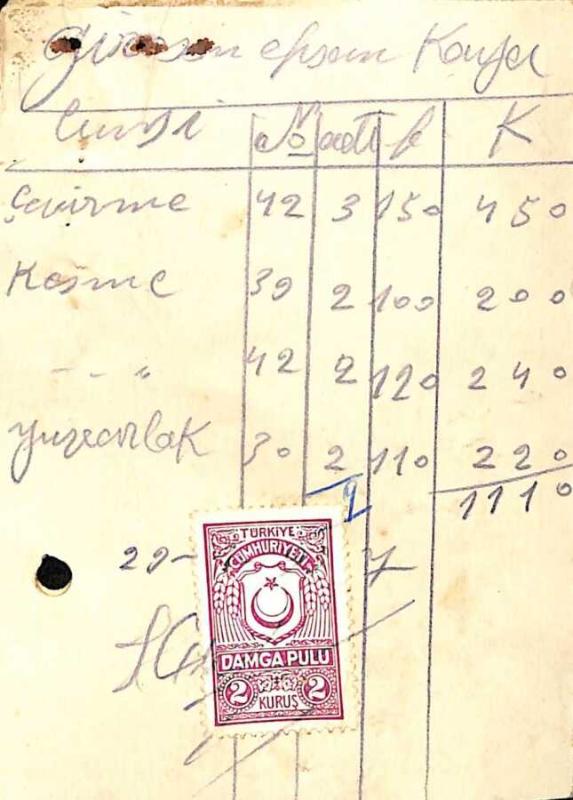 Giresun
Cinsi No adt f K
Çevirme 42 3 150 450
Kesme 39 2 100 200
- - " 42 2 120 240
yuvarlak 30 2 110 220
9 1110
29-
TÜRKİYE
CUMHURİYETİ
DAMGA PULU
2 2
KURUŞ